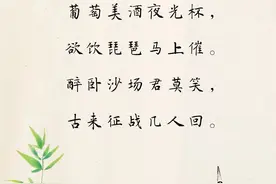 葡萄美酒夜光杯，
欲饮琵琶马上催。
醉卧沙场君莫笑，
古来征战几人回。